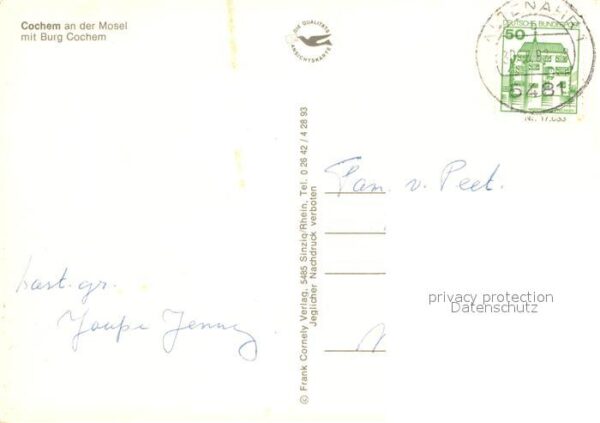 Cochem an der Mosel
mit Burg Cochem
DIE QUALITÄTS
ANSICHTSKARTE
ALTENAHR 1
5481
DEUTSCHE BUNDESPOST
50
Nr. 17.033
© Frank Cornely Verlag, 5485 Sinzig/Rhein, Tel. 0 26 42 / 4 28 93
Jeglicher Nachdruck verboten
Fam. v. Peet.
hart. gr.
Jenny
privacy protection
Datenschutz